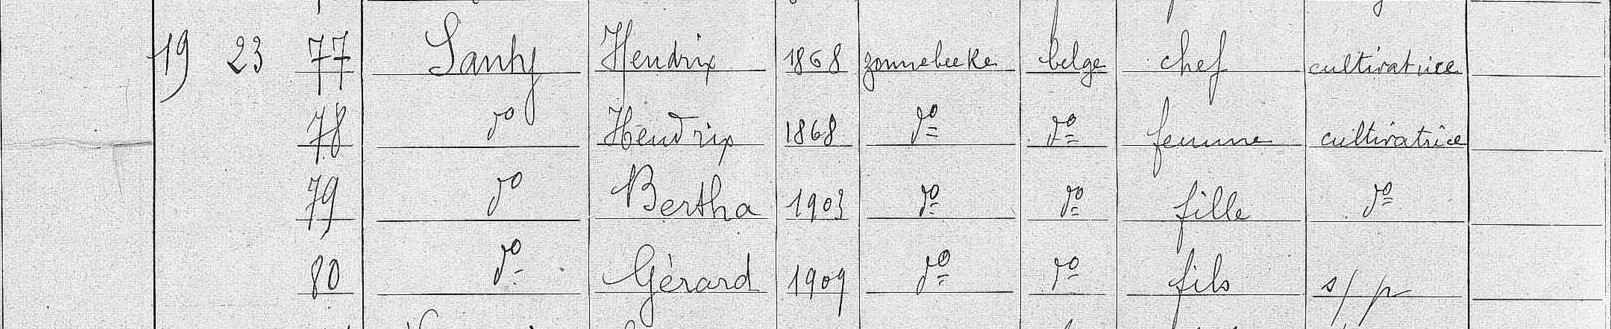 19 23 77 Santy Hendrix 1868 zonnebeeke belge chef cultivatrice
78 do Hendrix 1868 do do femme cultivatrice
79 do Bertha 1903 do do fille do
80 do Gérard 1909 do do fils s/p